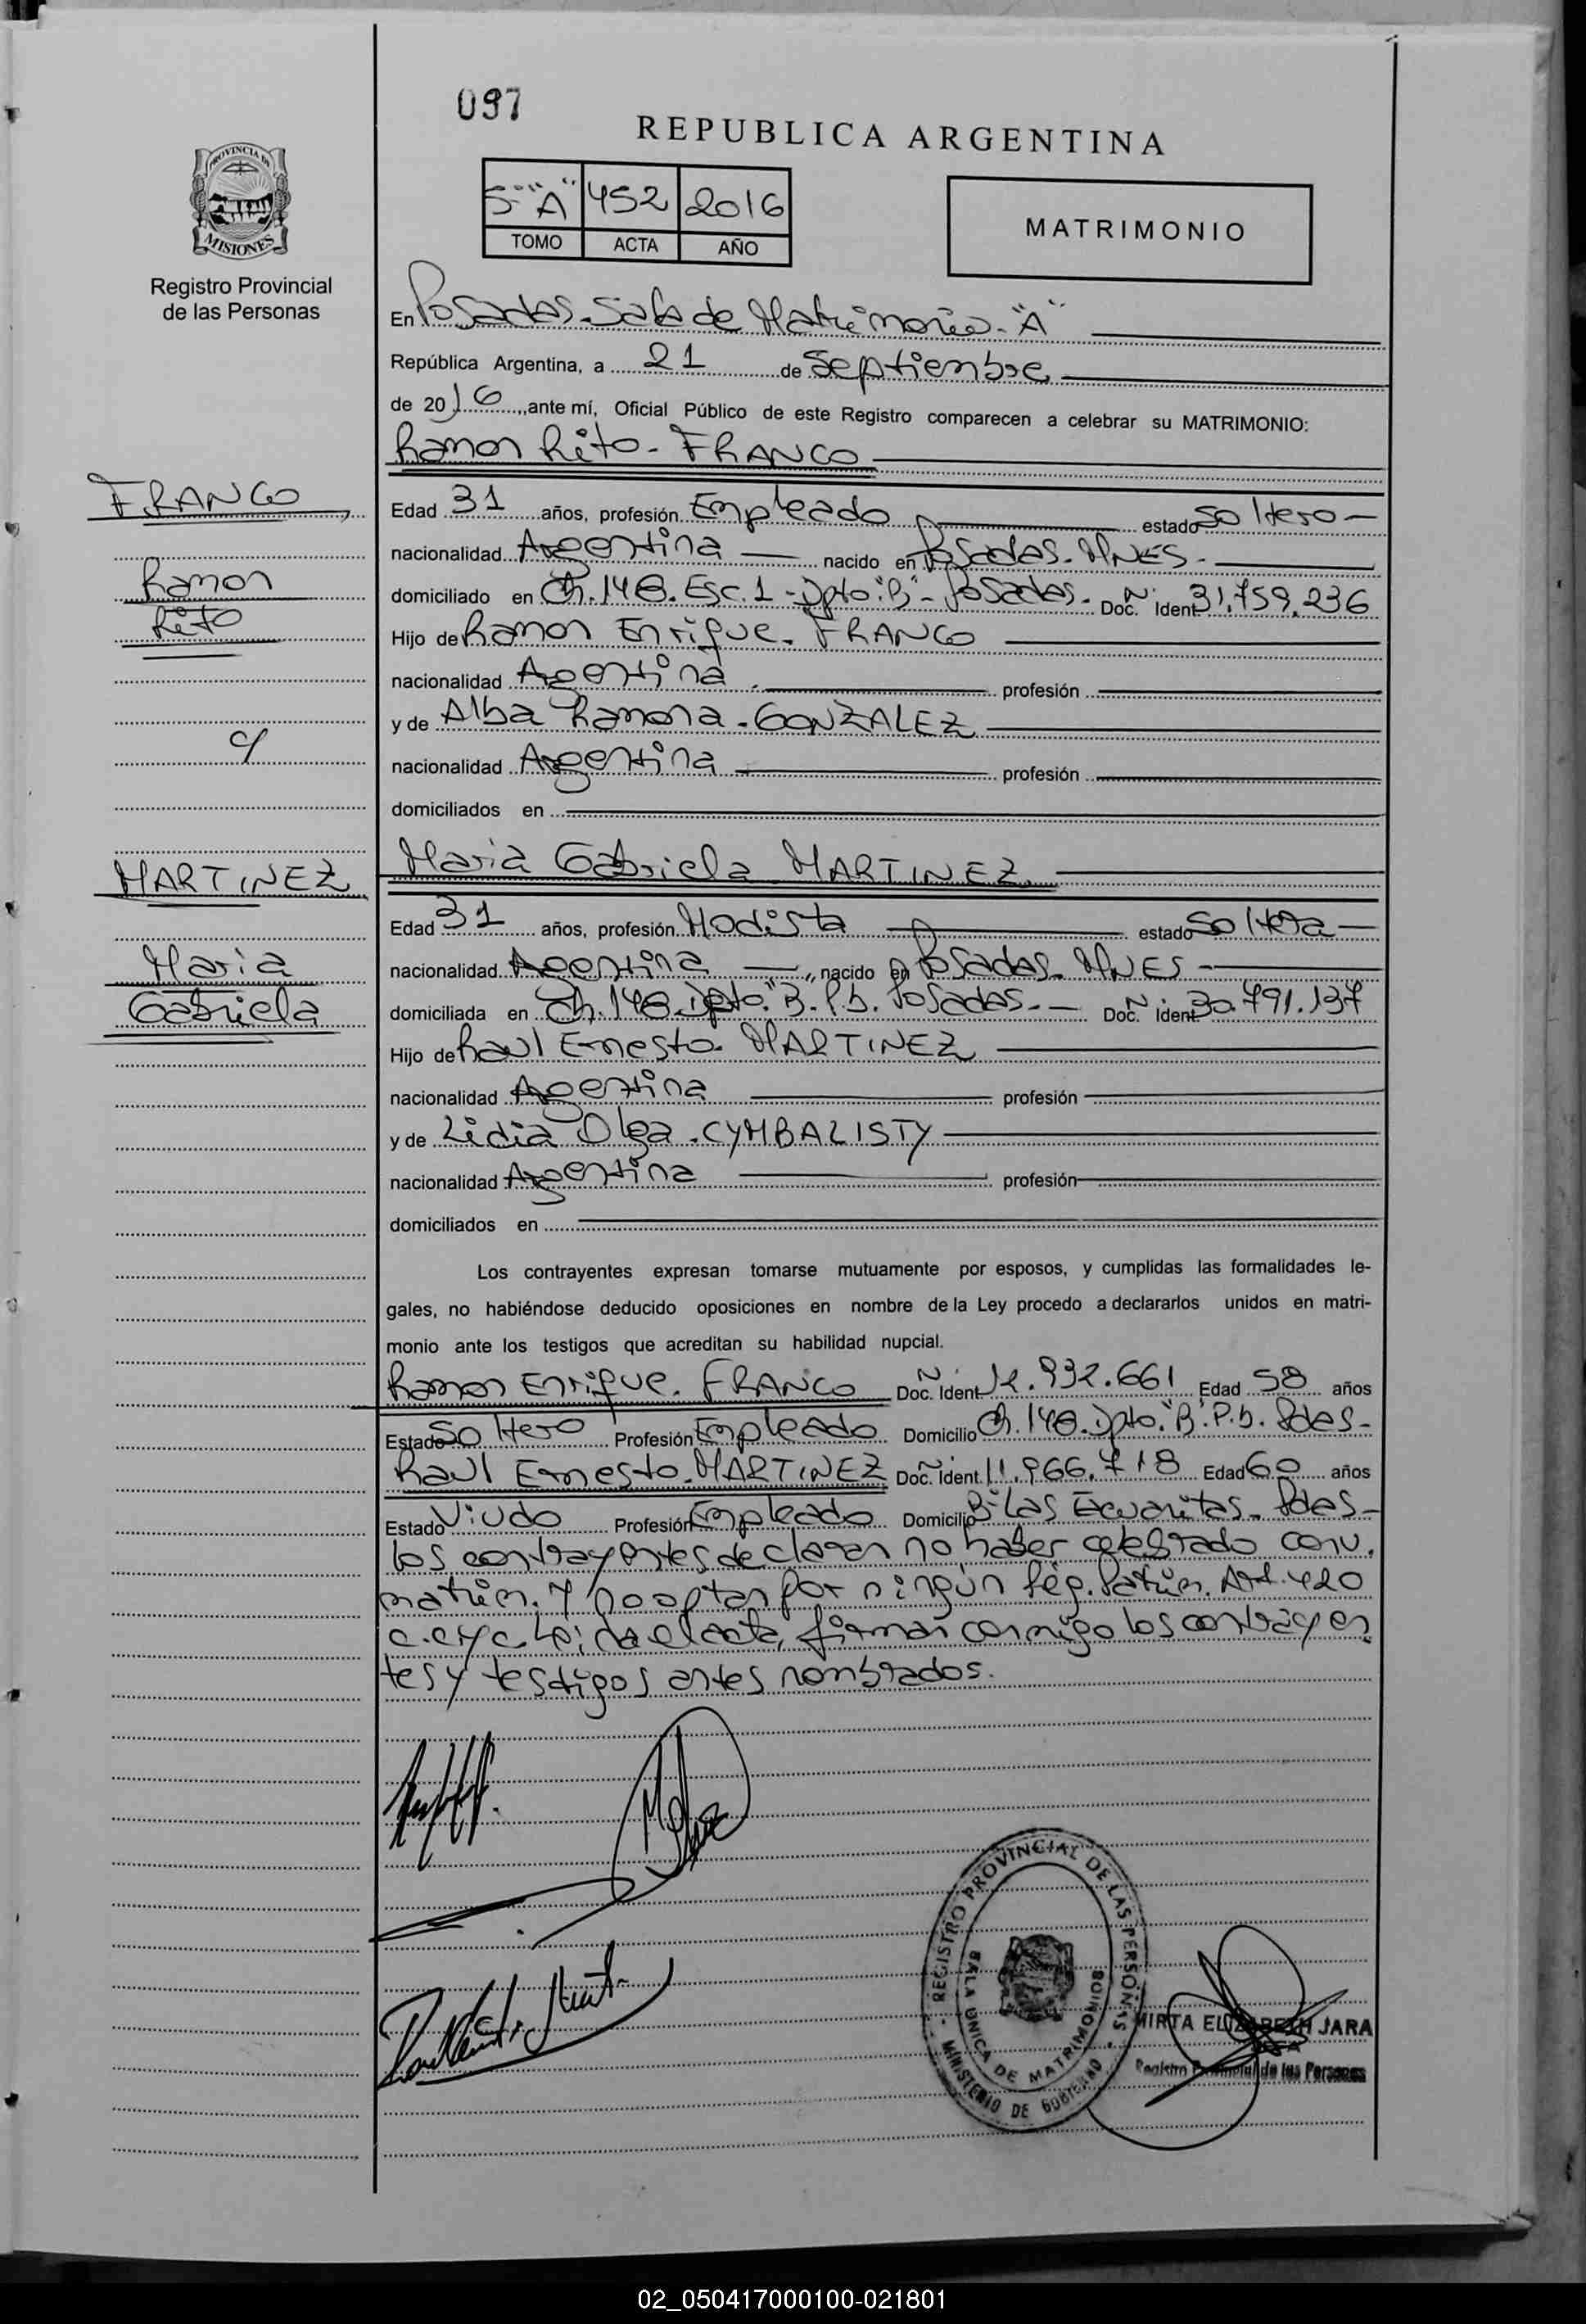 097
REPUBLICA ARGENTINA
5-"A" 452 2016
TOMO ACTA AÑO
MATRIMONIO
PROVINCIA DE
MISIONES
Registro Provincial
de las Personas
En Posadas. Sala de Matrimonio. "A"
República Argentina, a 21 de Septiembre
de 2016, ante mí, Oficial Público de este Registro comparecen a celebrar su MATRIMONIO:
Ramon Rito - FRANCO
FRANCO
Edad 31 años, profesión Empleado estado soltero
nacionalidad Argentina nacido en Posadas. MNES.
Ramon
domiciliado en Ch. 148. Esc. 1 - Dpto "B" - Posadas. Doc. Nº Ident 31.759.236
Rito
Hijo de Ramon Enrique. FRANCO
nacionalidad Argentina profesión
y de Alba Ramona - GONZALEZ
c/
nacionalidad Argentina profesión
domiciliados en
Maria Gabriela MARTINEZ
MARTINEZ
Edad 31 años, profesión Modista estado soltera
Maria
nacionalidad Argentina nacido en Posadas. MNES
Gabriela
domiciliada en Ch. 148. Dpto. "B". P.b. Posadas. Doc. Nº Ident 30.791.137
Hijo de Raul Ernesto. MARTINEZ
nacionalidad Argentina profesión
y de Lidia Olga. CYMBALISTY
nacionalidad Argentina profesión
domiciliados en
Los contrayentes expresan tomarse mutuamente por esposos, y cumplidas las formalidades le-
gales, no habiéndose deducido oposiciones en nombre de la Ley procedo a declararlos unidos en matri-
monio ante los testigos que acreditan su habilidad nupcial.
Ramon Enrique. FRANCO Doc. Nº Ident 12.932.661 Edad 58 años
Estado Soltero Profesión Empleado Domicilio Ch. 148. Dpto. "B". P.b. Pdas-
Raul Ernesto. MARTINEZ Doc. Nº Ident 11.966.718 Edad 60 años
Estado Viudo Profesión Empleado Domicilio Bº Las Pdas-
los contrayentes declaran no haber celebrado conv.
matrim. y no optan por ningún Rég. Patrim. Art. 420
C.C y C. Leida el acta, firman conmigo los contrayen
tes y testigos antes nombrados.
REGISTRO PROVINCIAL DE LAS PERSONAS
SALA UNICA DE MATRIMONIOS
MINISTERIO DE GOBIERNO
MIRTA ELIZABETH JARA
Registro Provincial de las Personas
02_050417000100-021801